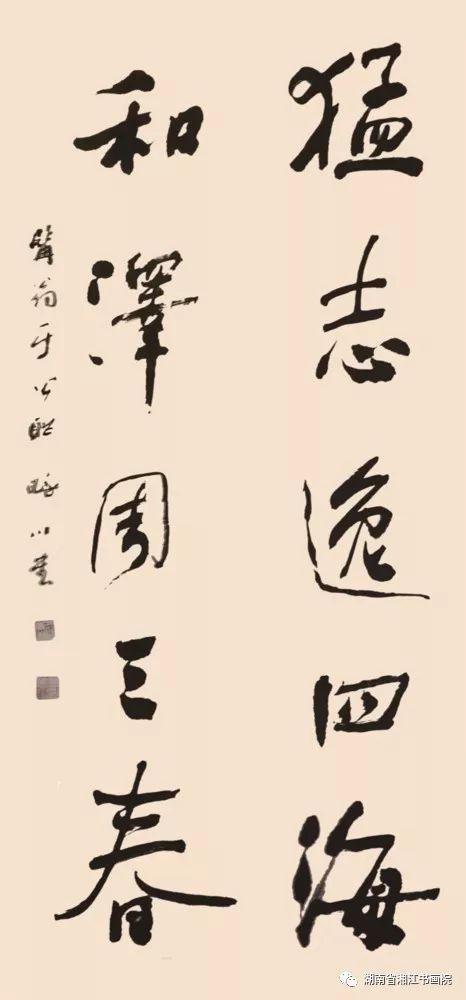 猛志逸四海
和澤周三春
髯翁于公联 川書
湖南省湘江书画院